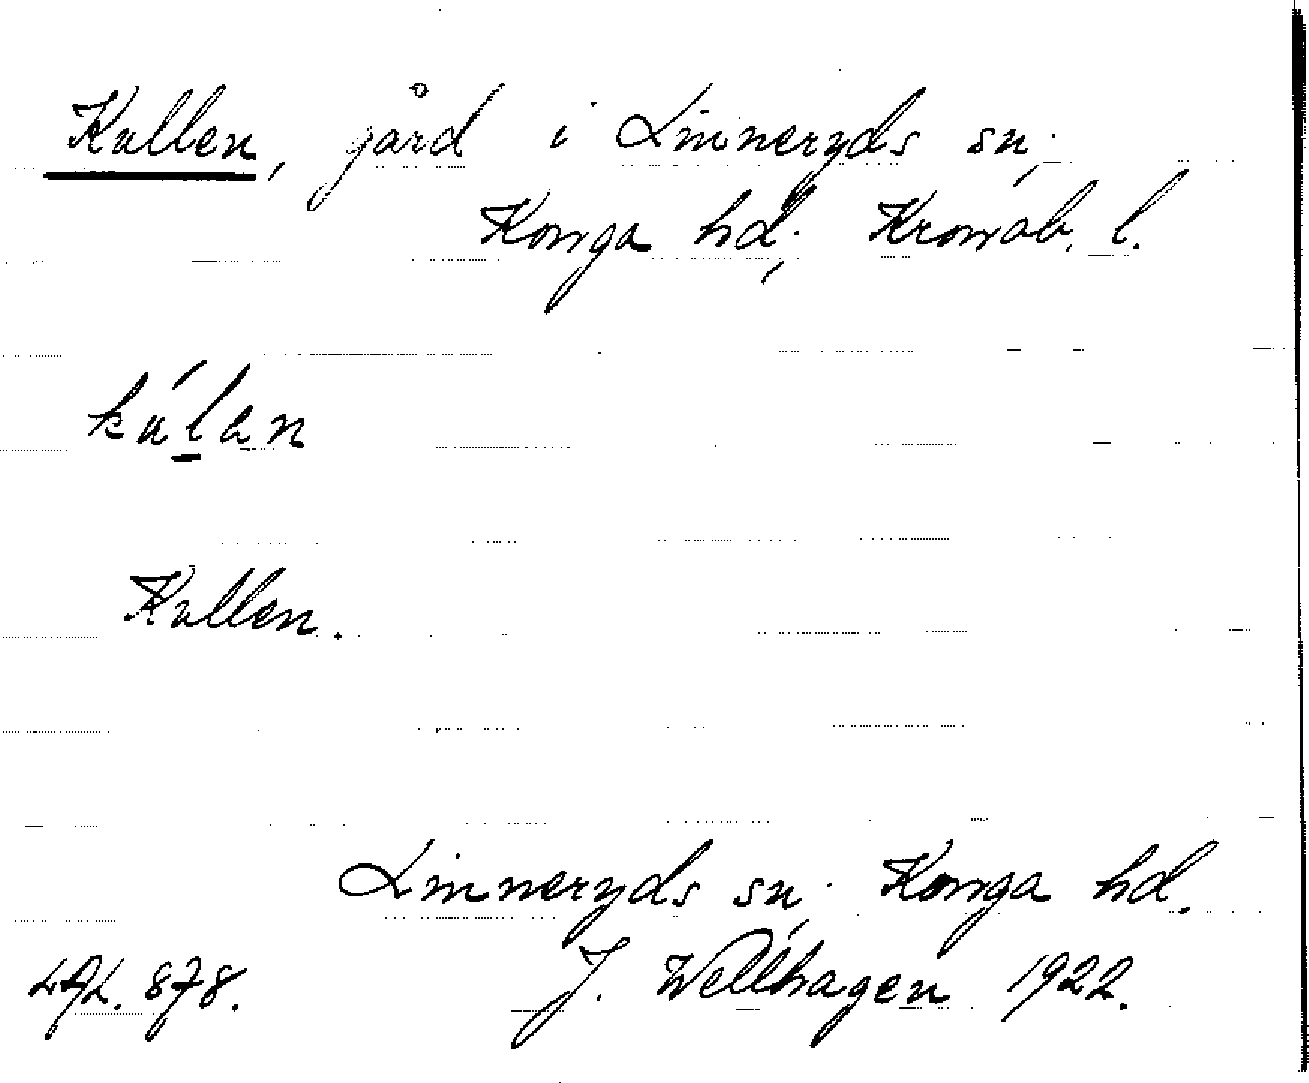 Kullen, gård i Linneryds sn;
Konga hd; Kronob. l.
kúlan
Kullen.
Linneryds sn; Konga hd.
J. Wellhagen 1922.
878.